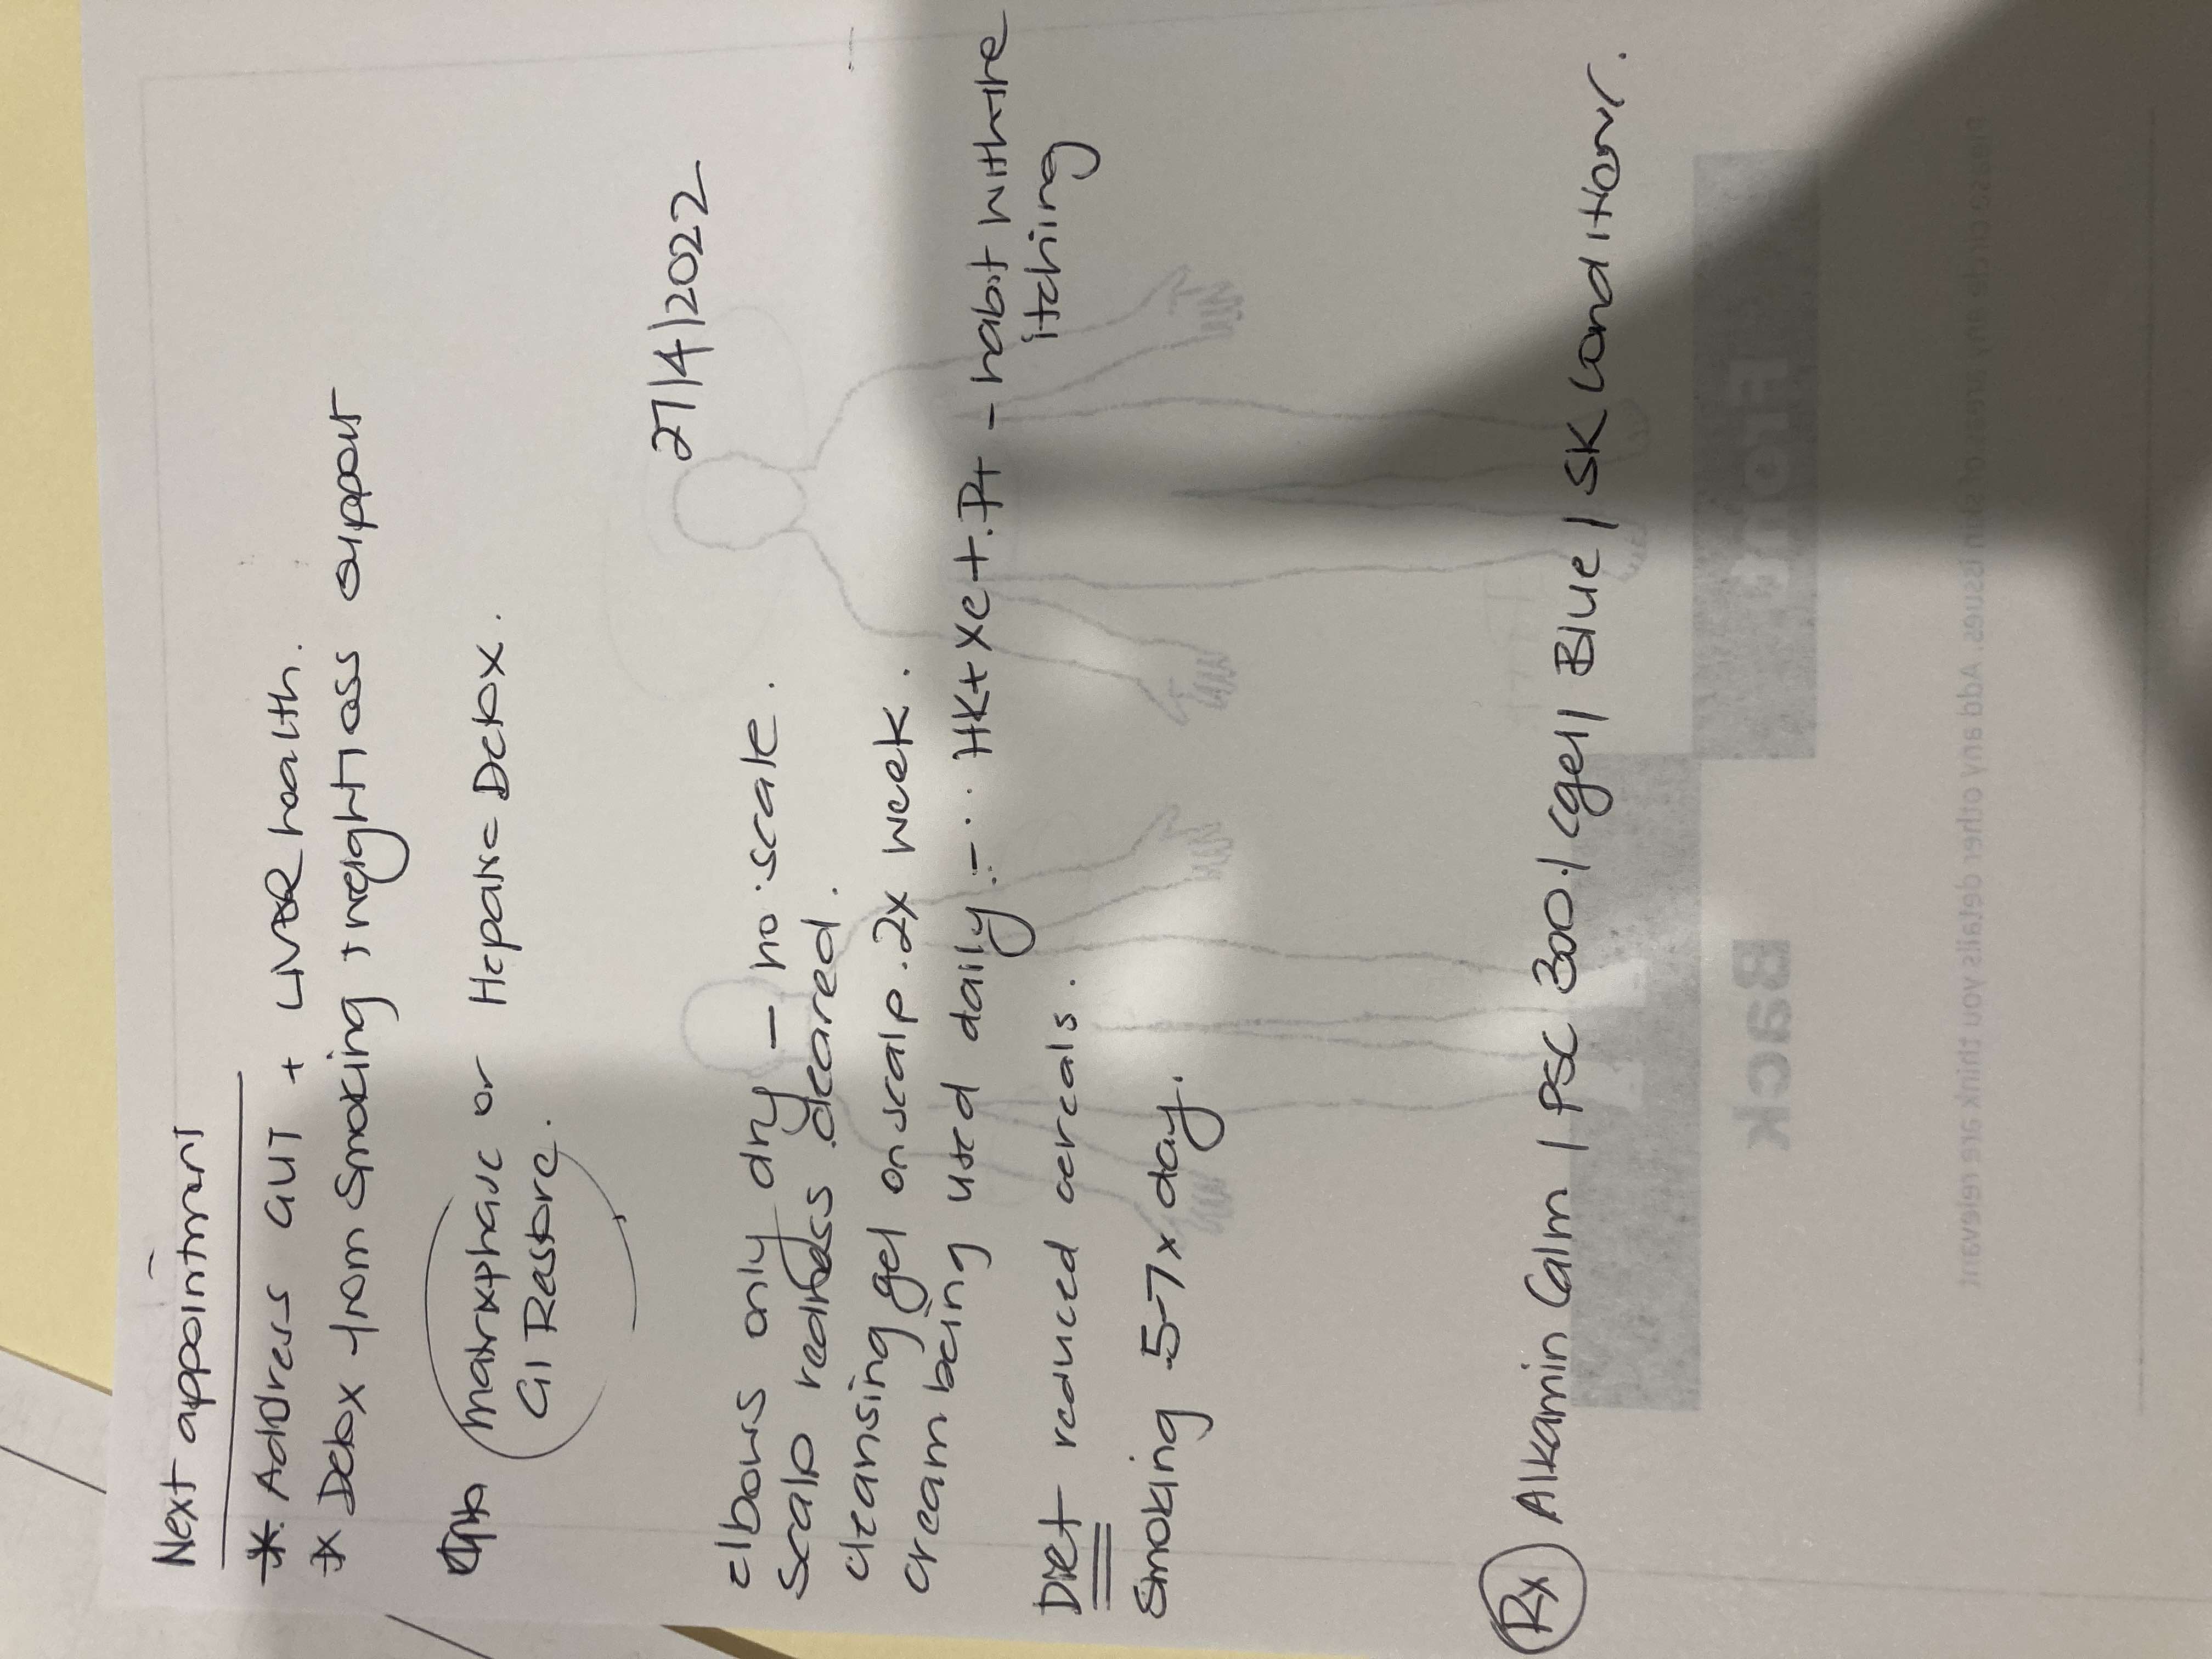 Next appointment
* Address GUT + LIVER health.
* Detox from smoking + weight loss support
Matrixphase or Hepatic Detox.
GI Restore.
27/4/2022
elbows only dry - no scale.
Scalp redness cleared.
cleansing gel on scalp. 2x week.
cream being used daily - HK + Xe +. Pt - habit with the
itching
Diet reduced cereals.
Smoking 5-7x day.
Rx Alkamin Calm / PSC 300 / cgel / Blue / SK Conditionr.
Front
Back
Please circle any areas of skin issues. Add any other details you think are relevant